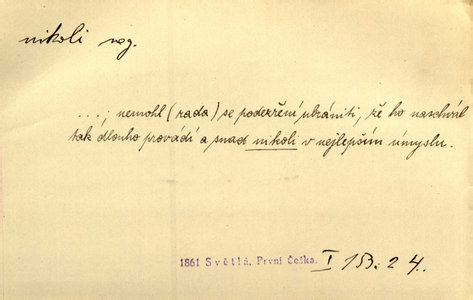 nikoli neg.
...; nemohl (rada) se podezření ubrániti, že ho naschvál
tak dlouho provádí a snad nikoli v nejlepším úmyslu.
1861 Světlá, První Češka. I 153. 24.